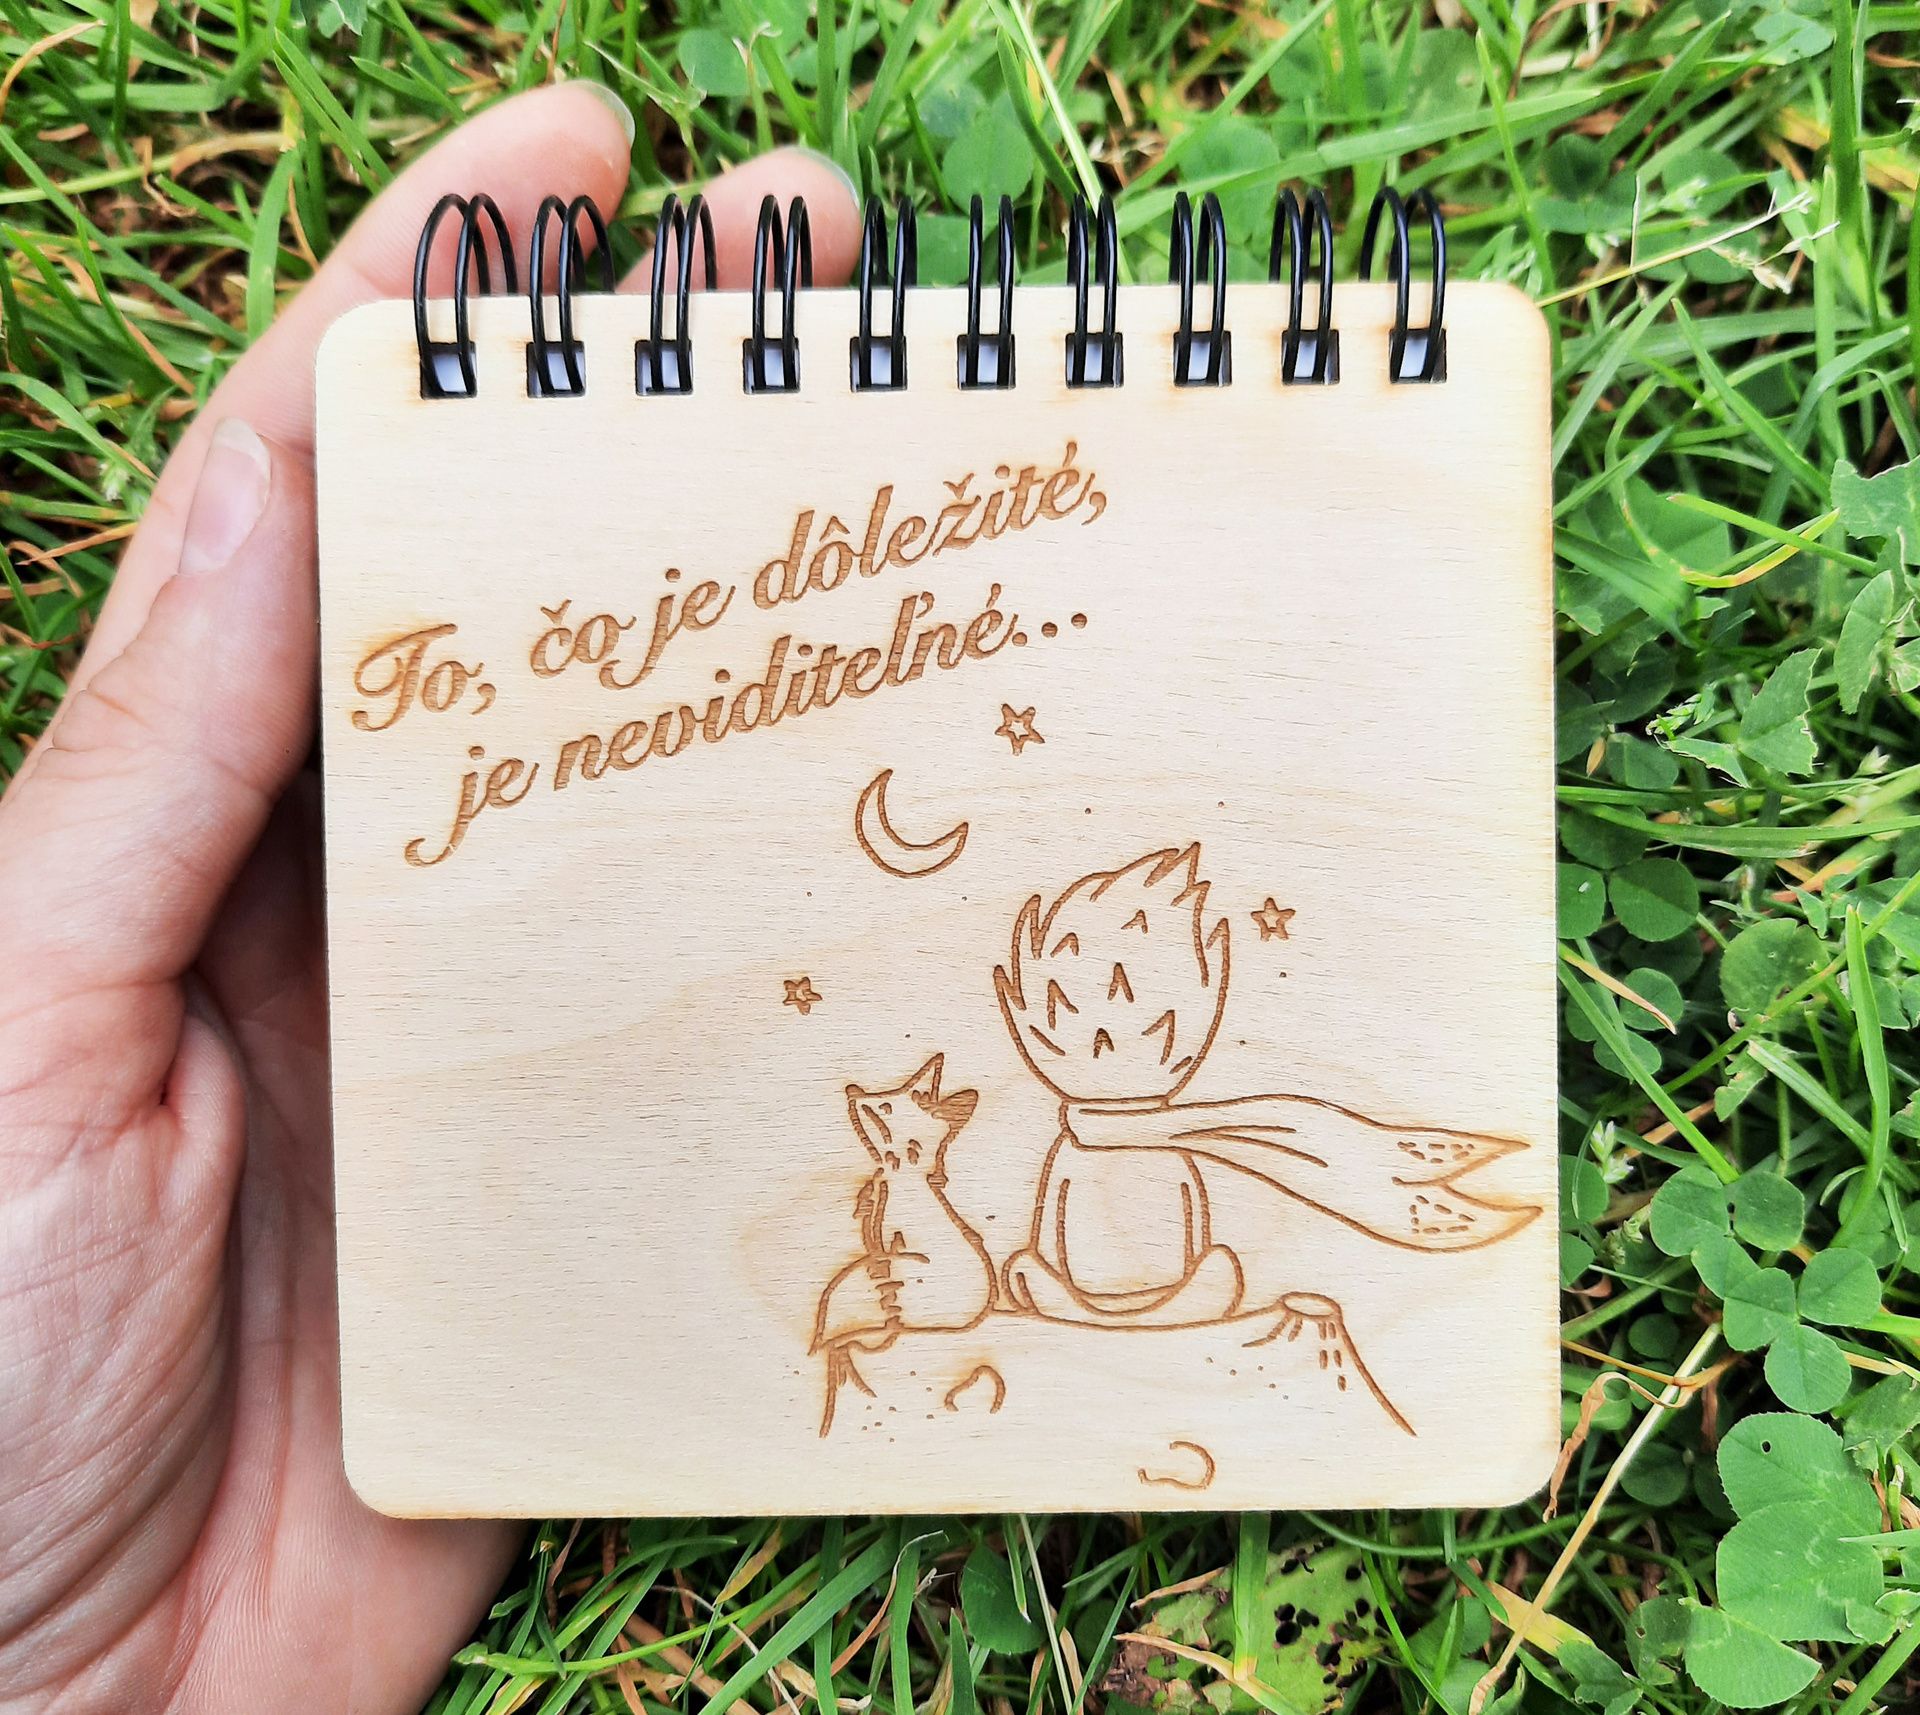 To, čo je dôležité,
je neviditeľné...